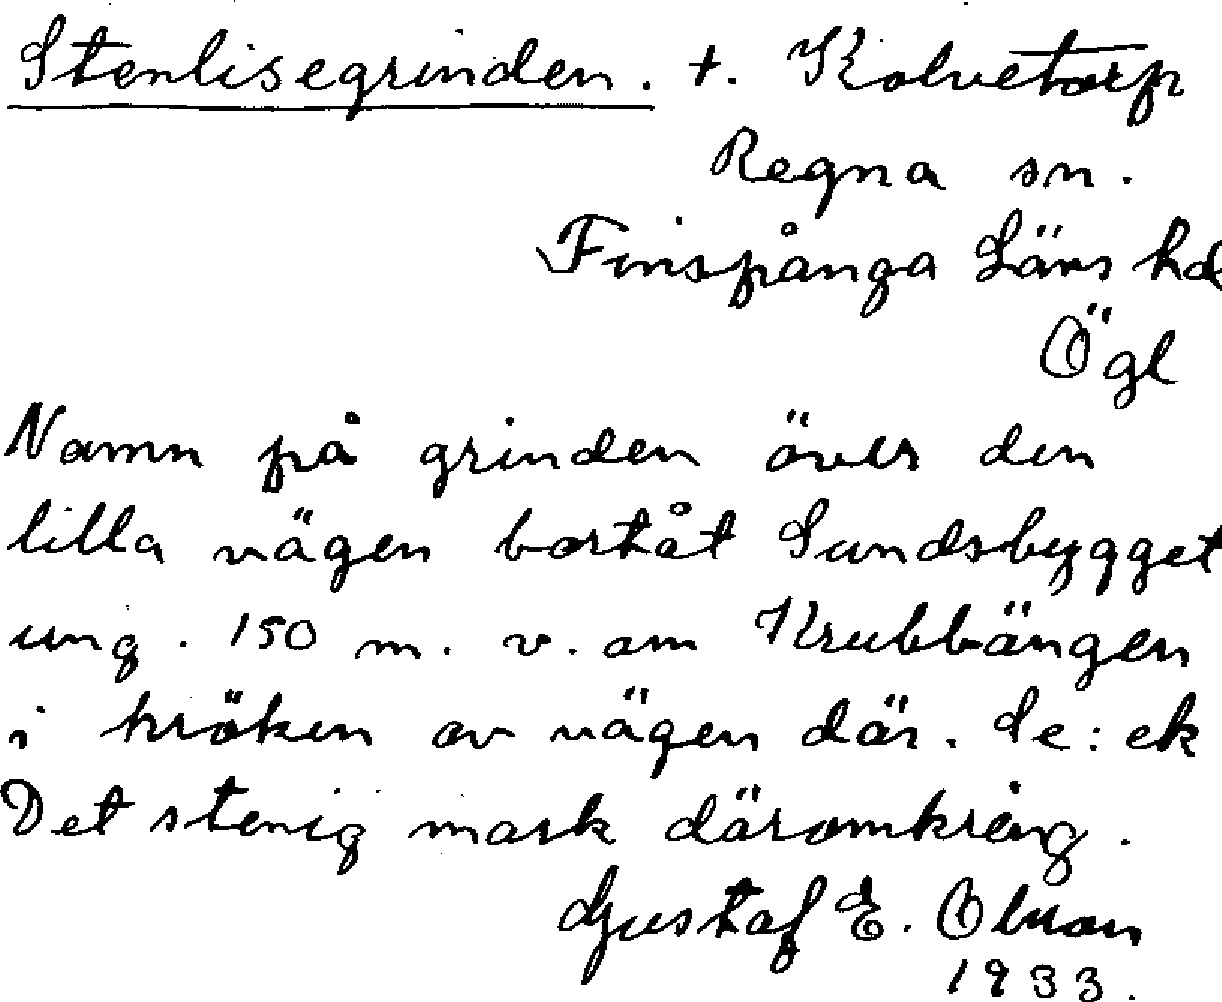 Stenlisegrinden. t. Kolvetorp
Regna sn.
Finspånga Läns hd
Ögl
Namn på grinden över den
lilla vägen bortåt Sundsbygget
ung. 150 m. v. om Krubbängen
i kröken av vägen där. Se: ek
Det stenig mark däromkring.
Gustaf E. Olsson
1933.